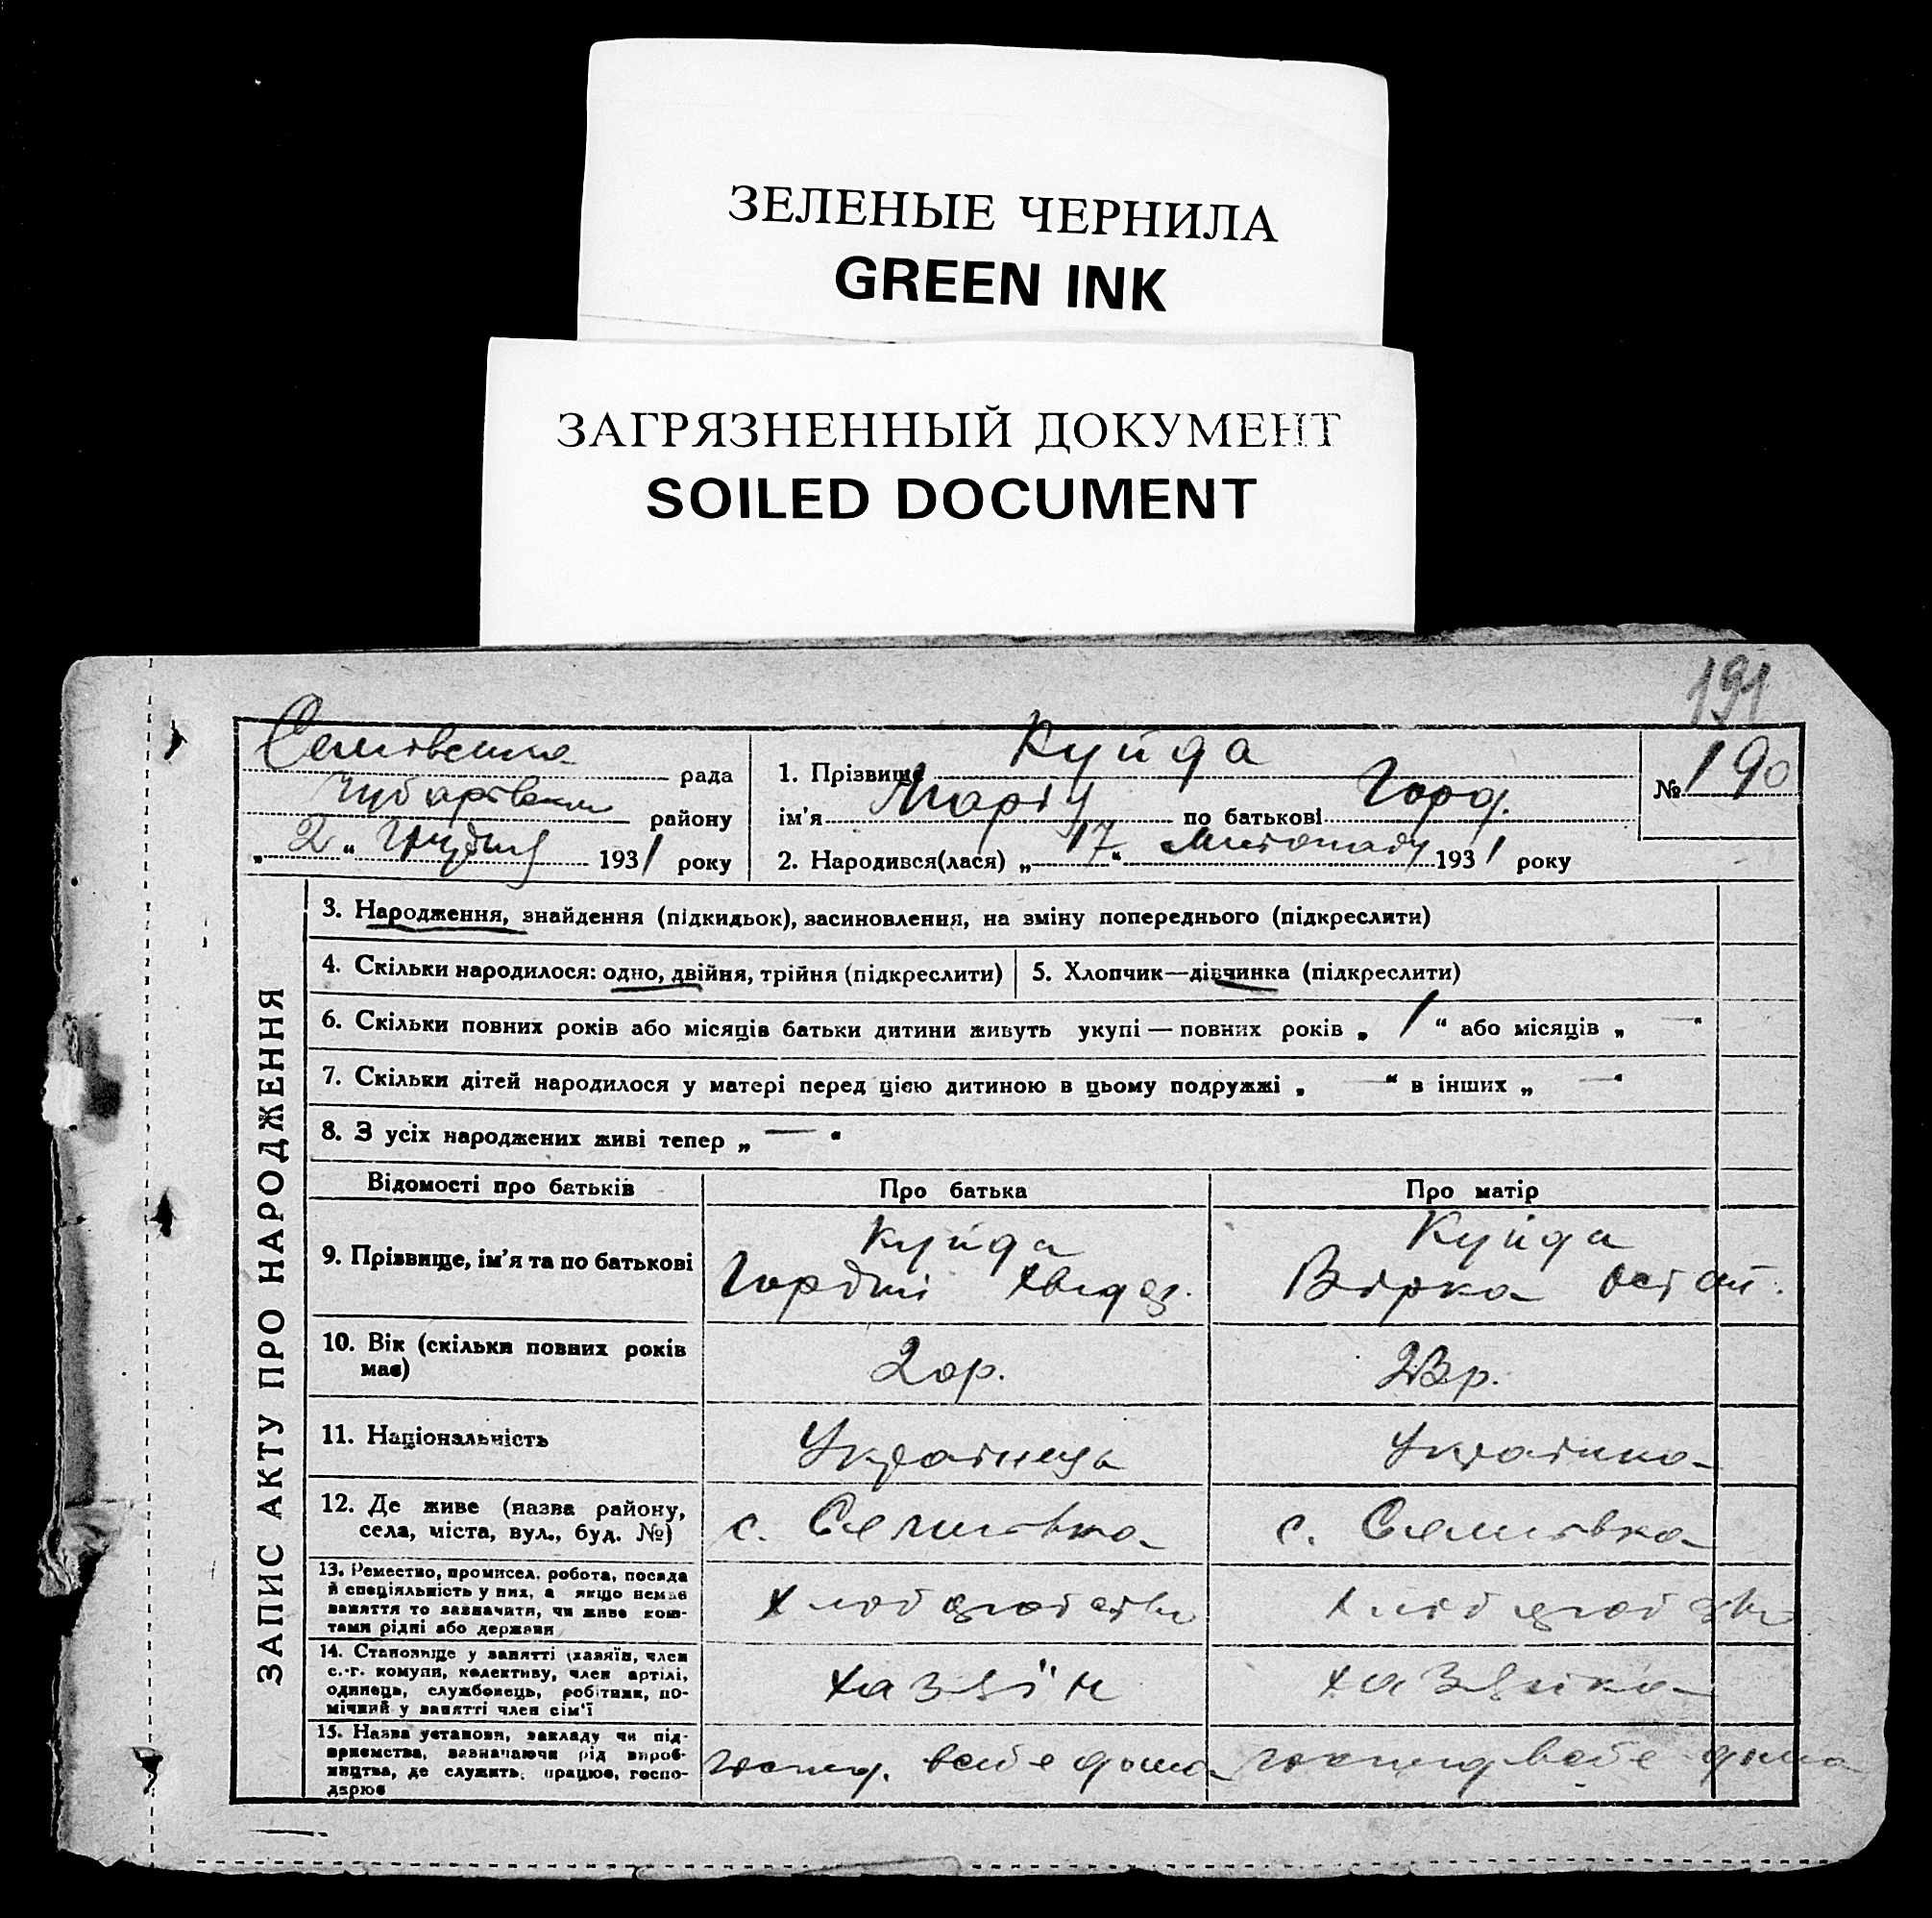 ЗЕЛЕНЫЕ ЧЕРНИЛА
GREEN INK
ЗАГРЯЗНЕННЫЙ ДОКУМЕНТ
SOILED DOCUMENT
191
рада
району
„ 2 “ Грудня 1931 року
1. Прізвище Куйда
ім'я Марія по батькові Горд.
2. Народився(лася) „ 17 “ Листопаду 1931 року
№ 190
ЗАПИС АКТУ ПРО НАРОДЖЕННЯ
3. Народження, знайдення (підкидьок), засиновлення, на зміну попереднього (підкреслити)
4. Скільки народилося: одно, двійня, трійня (підкреслити)
5. Хлопчик—дівчинка (підкреслити)
6. Скільки повних років або місяців батьки дитини живуть укупі — повних років „ 1 “ або місяців „ — “
7. Скільки дітей народилося у матері перед цією дитиною в цьому подружжі „ — “ в інших „ — “
8. З усіх народжених живі тепер „ — “
Відомості про батьків
Про батька
Про матір
9. Прізвище, ім'я та по батькові
Куйда
Гордій
Куйда
Вірка Остап.
10. Вік (скільки повних років
має)
20р.
23р.
11. Національність
Українець
Українка
12. Де живе (назва району,
села, міста, вул., буд. №)
с. Семинівка
с. Семинівка
13. Ремество, промисел, робота, посада
й спеціяльність у них, а якщо немає
заняття то зазначити, чи живе кош-
тами рідні або держави
хлібробство
хлібробство
14. Становище у занятті (хазяїн, член
с.-г. комуни, колективу, член артілі,
одинець, службовець, робітник, по-
мічний у занятті член сім'ї
хазяїн
хазяйка
15. Назва установи, закладу чи під-
приємства, зазначаючи рід вироб-
ництва, де служить, працює, госпо-
дарює
господ. в себе дома
господ в себе дома